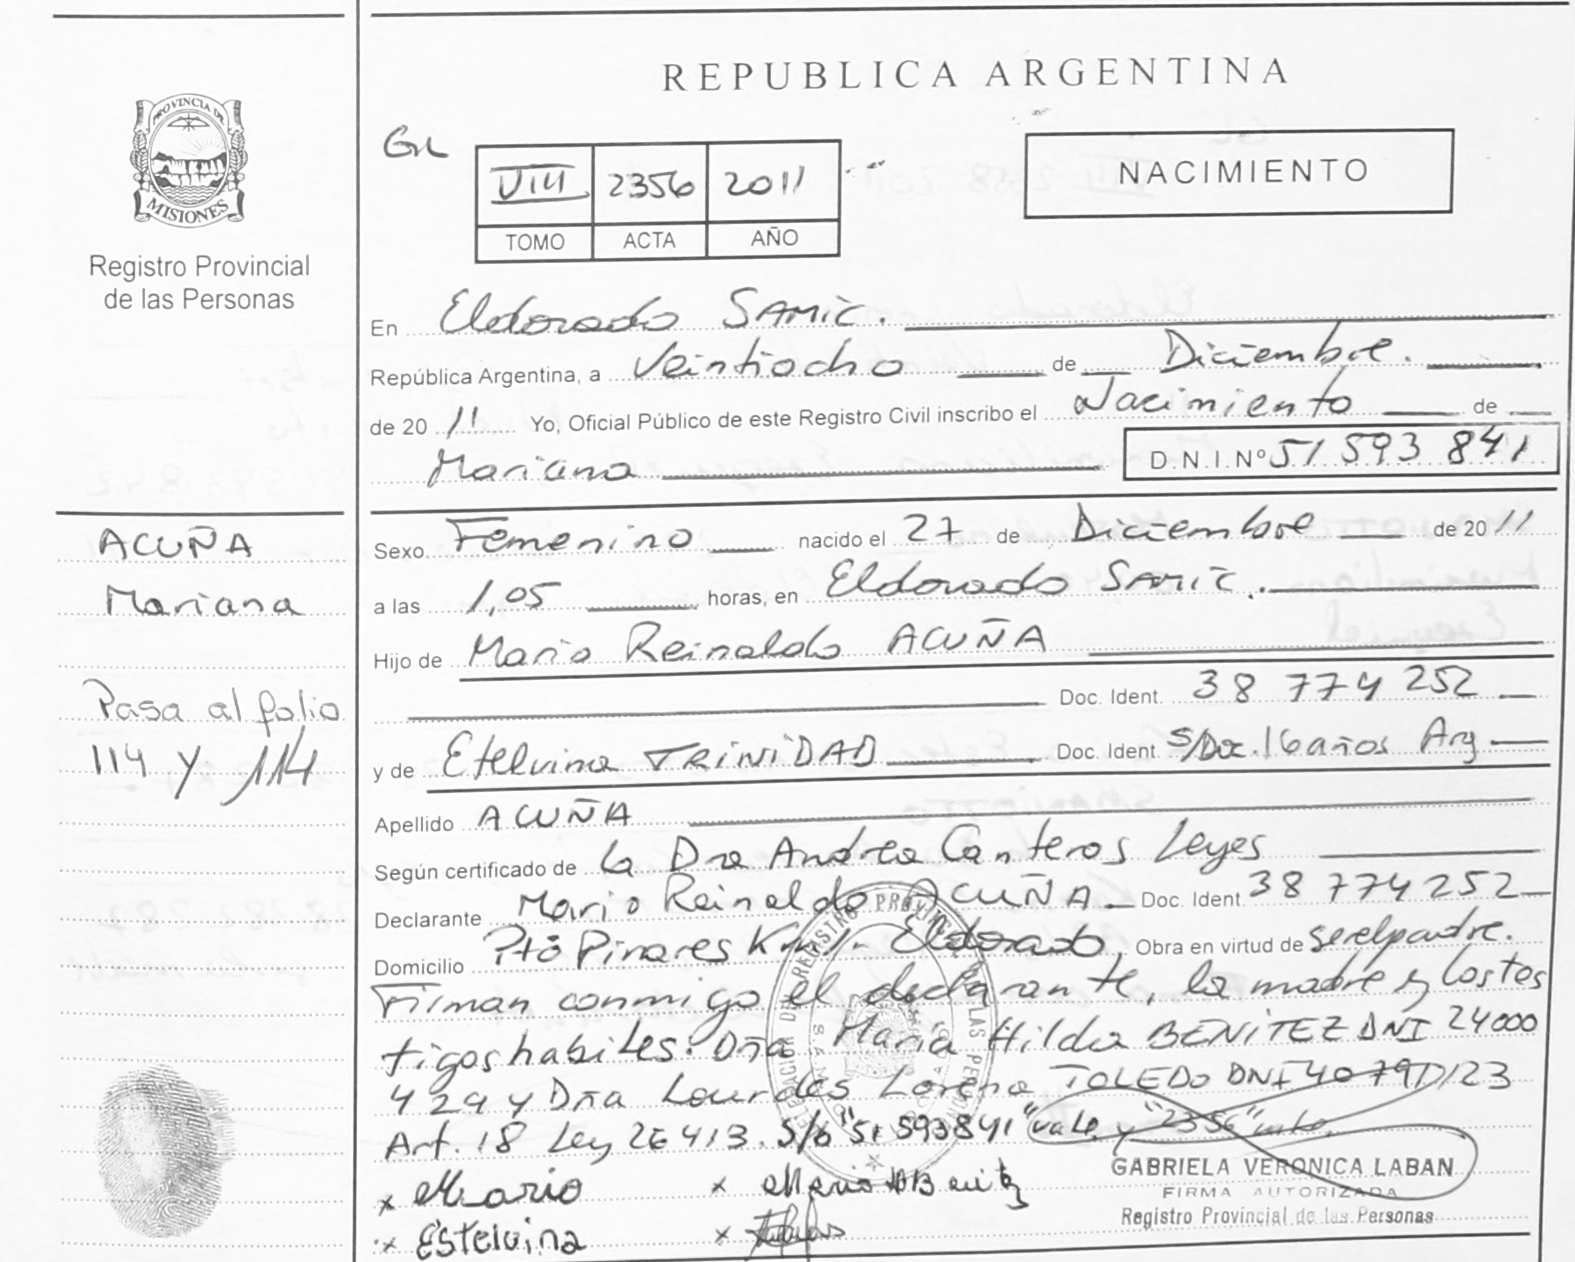 REPUBLICA ARGENTINA
PROVINCIA DE
MISIONES
Registro Provincial
de las Personas
VIII 2356 2011
TOMO ACTA AÑO
NACIMIENTO
En Eldorado SAMIC.
República Argentina, a Veintiocho de Diciembre.
de 20 11 Yo, Oficial Público de este Registro Civil inscribo el Nacimiento de
Mariana D.N.I.Nº 51 593 841
ACUÑA
Mariana
Pasa al folio
114 y 114
Sexo Femenino nacido el 27 de Diciembre de 20 11
a las 1,05 horas, en Eldorado SAMIC.
Hijo de Mario Reinaldo ACUÑA
Doc. Ident. 38 774 252
y de Etelvina TRINIDAD Doc. Ident. S/Doc. 16 años Arg
Apellido ACUÑA
Según certificado de la Dra Andrea Canteros Leyes
Declarante Mario Reinaldo ACUÑA Doc. Ident. 38 774 252
Domicilio Pto Pinares Km 1 - Eldorado, Obra en virtud de ser el padre.
Firman conmigo el declarante, la madre y los tes
tigos habiles: Dña María Hilda BENITEZ DNI 24000
429 y Dña Lourdes Lorena TOLEDO DNI
Art. 18 Ley 26413. S/b "51 593841" vale y "2356"
GABRIELA VERONICA LABAN
FIRMA AUTORIZADA
Registro Provincial de las Personas
x Mario x
x Estelvina x